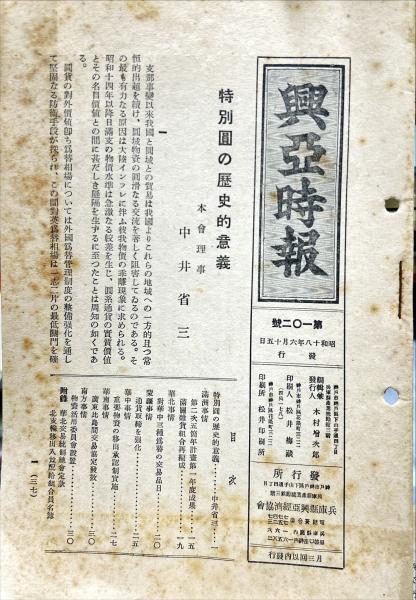 興亞時報
第一〇二號
昭和十八年六月十五日
發行
編輯兼
發行人 木村增次郎
印刷人 松井梅藏
印刷所 松井印刷所
發行所
兵庫縣興亞經濟協會
月三回以內發行
特別圓の歷史的意義
本會理事
中井省三
一
支那事變以來我國と圓域との貿易は我國よりこれらの地域への一方的且つ常
恒的出超を續け、圓域物資の圓滑なる交流を著しく阻害してゐるのである。そ
の最も有力なる原因は大陸インフレに伴ふ彼我物價の乖離現象に求められる。
昭和十四年以降日滿支の物價水準は急激なる較差を生じ、圓系通貨の實質價値
とその名目價値との間に甚だしき隔隔を生ずるに至つたことは周知の如くであ
る。
圓貨の對外價値卽ち爲替相場については外國爲替管理制度の整備强化を通し
て堅固なる防衞手段が採られ、この間對英爲替相場は一志二片の最低關門を確
目次
特別圓の歷史的意義……中井省三…一
滿洲事情
第二次五箇年計畫第一年度成果…一五
滿關雜貨組合再編成…一九
華北事情
對華中三種爲替の交易品目…二〇
蒙疆事情
通貨取締を强化…二五
華中事情
重要物資の移出承認制實施…二七
華南事情
廣東北島間交易協定發效…三〇
南方事情
物資活用委員會設置…三〇
附錄
華北交易統制總會定款
北支蒙疆移出入並配給組合員名簿
一(三七)